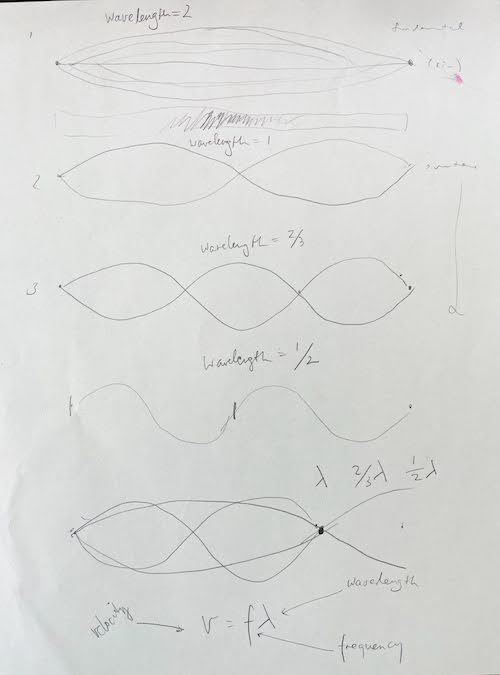 wavelength=2
1
fundamental
wavelength=1
2
wavelength = 2/3
3
wavelength = 1/2
λ 2/3λ 1/2 λ
wavelength
velocity
v = fλ
frequency